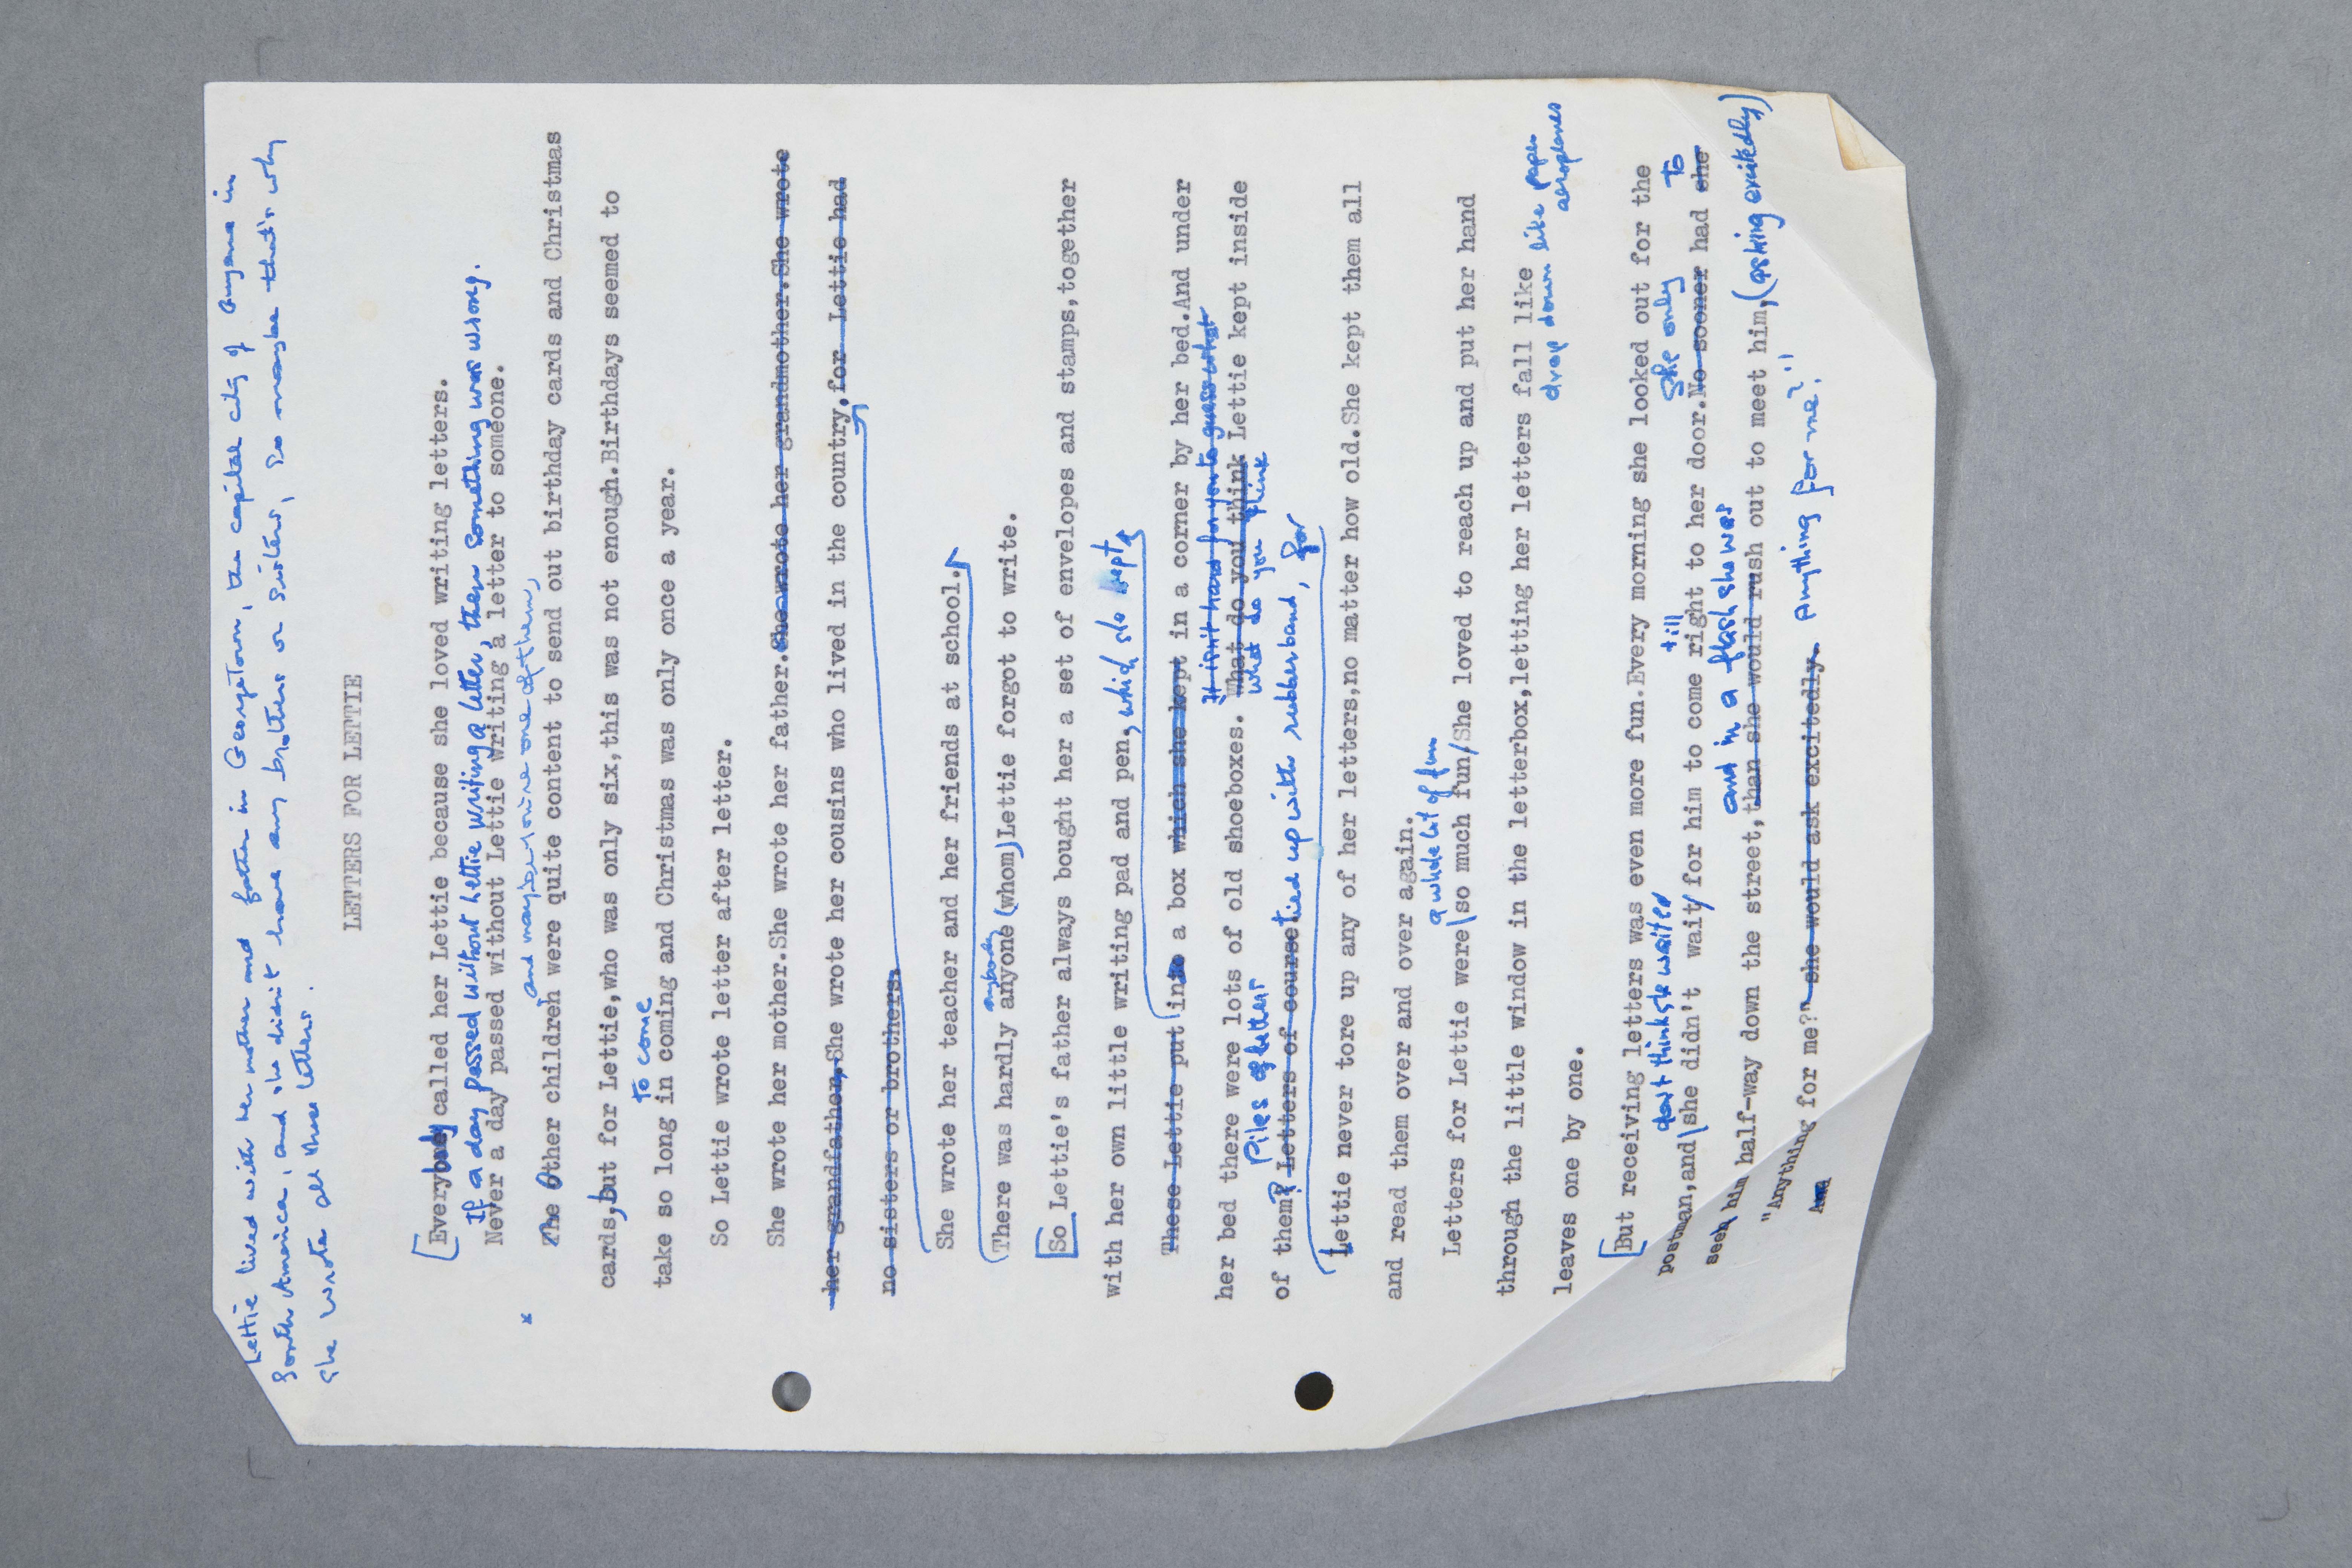 Lettie lived with her mother and father in Georgetown, the capital city of Guyana in
South America, and she didn't have any brothers or sisters, so maybe that's why
she wrote all those letters.
LETTERS FOR LETTIE
Everybody called her Lettie because she loved writing letters.
If a day passed without Lettie writing a letter, then something was wrong.
Never a day passed without Lettie writing a letter to someone.
x
and maybe you're one of them,
The Other children were quite content to send out birthday cards and Christmas
cards, but for Lettie,who was only six,this was not enough.Birthdays seemed to
to come
take so long in coming and Christmas was only once a year.
So Lettie wrote letter after letter.
She wrote her mother.She wrote her father.She wrote her grandmother.She wrote
her grandfather.She wrote her cousins who lived in the country.for Lettie had
no sisters or brothers.
She wrote her teacher and her friends at school.
anybody
There was hardly anyone (whom) Lettie forgot to write.
So Lettie's father always bought her a set of envelopes and stamps,together
with her own little writing pad and pen, which she kept
These Lettie put into a box which she kept in a corner by her bed.And under
It isn't hard for you to guess what
her bed there were lots of old shoeboxes. What do you think Lettie kept inside
Piles of letters what do you think
of them? Letters of course. tied up with rubberband, for
Lettie never tore up any of her letters,no matter how old.She kept them all
and read them over and over again.
a whole lot of fun
Letters for Lettie were so much fun.She loved to reach up and put her hand
through the little window in the letterbox,letting her letters fall like
drop down like paper
aeroplanes
leaves one by one.
But receiving letters was even more fun.Every morning she looked out for the
don't think she waited till She only to
postman,and she didn't wait for him to come right to her door.No sooner had she
and in a flash she was
seen him half-way down the street,than she would rush out to meet him, (asking excitedly)
"Anything for me?" she would ask excitedly. Anything for me?"